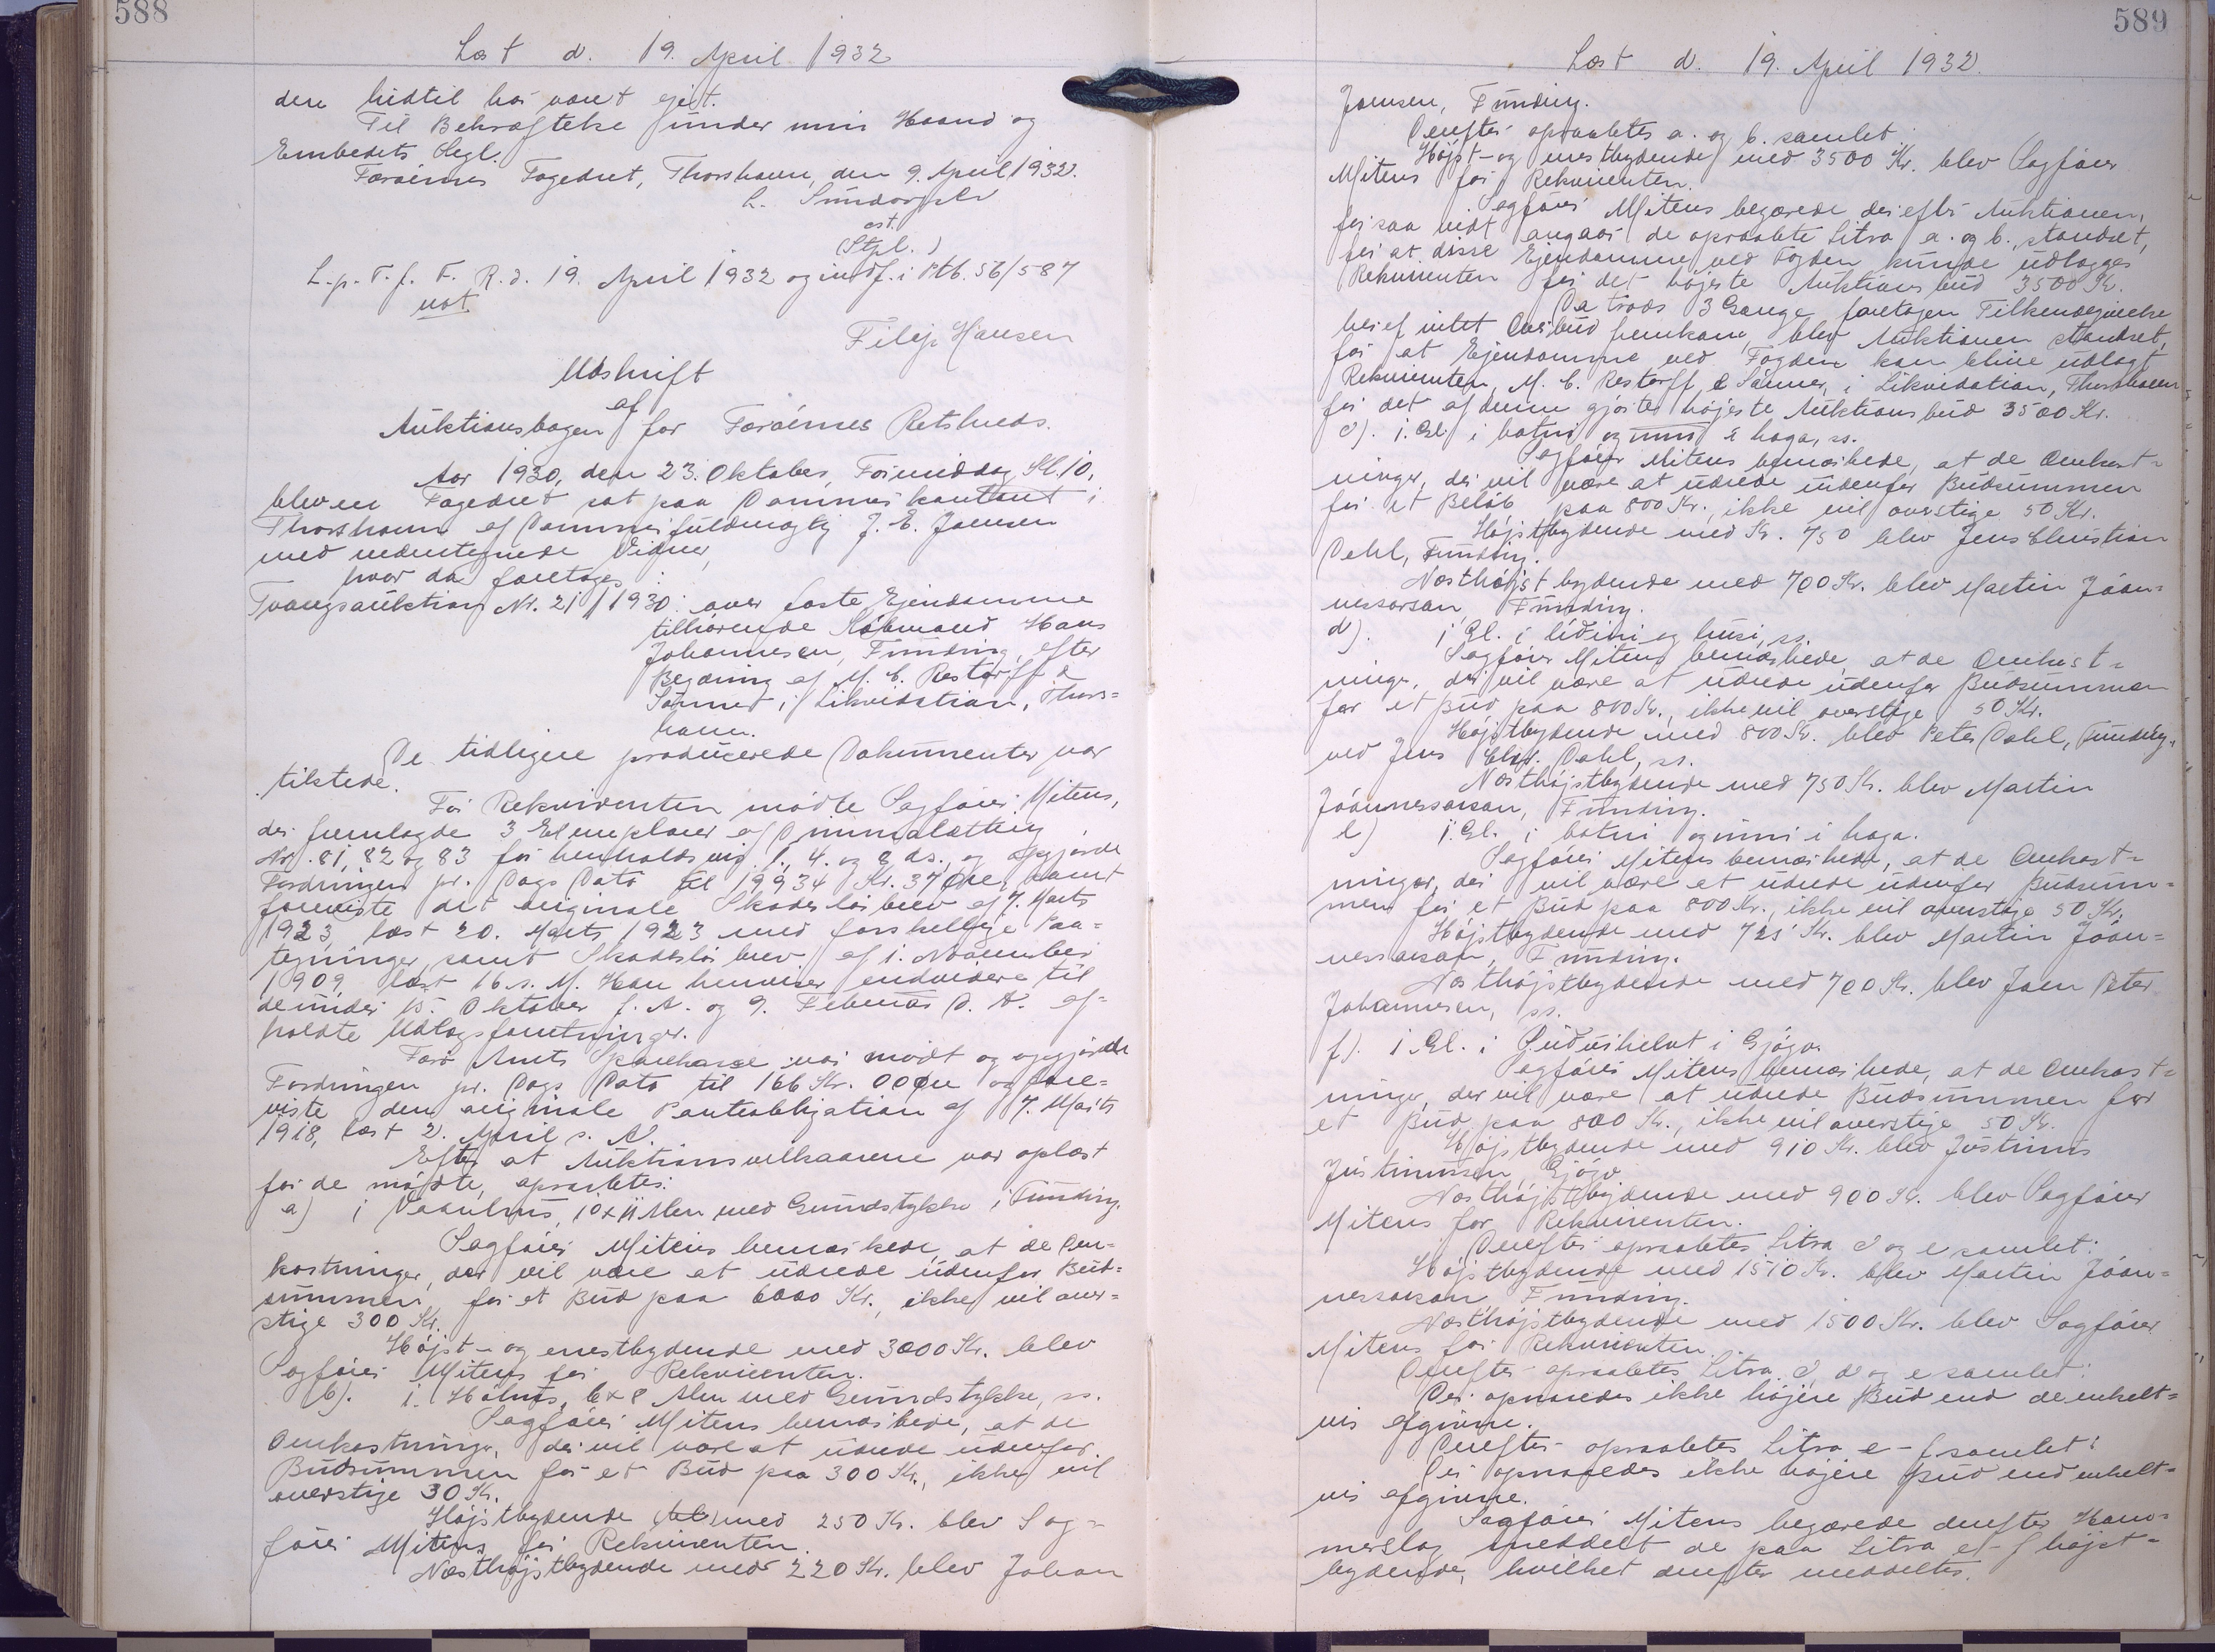 588
Læst d. 19. April 1932
den hidtil har været ejet.
Til Bekræftelse under min Haand og
Embedets Segl.
Færøernes Fogedret, Thorshavn, den 9. April 1932.
L.
cst.
(Stpl.)
L. p. T. f. F. R. d. 19. April 1932 og indf. i Ptb. 56/587
not.
Filip Hansen
Udskrift
af
Auktionsbogen for Færøernes Retskreds.
Aar 1930, den 23. Oktober, Formiddag Kl. 10,
blev en Fogedret sat paa Dommerkontoret i
Thorshavn af Dommerfuldmægtig J. E. Joensen
med undertegnede Vidner,
hvor da foretoges:
Tvangsauktion Nr. 21/1930: over faste Ejendomme
tilhørende Købmand Hans
Johannesen, Funding, efter
Begæring af M. C. Restorff &
Sønner i Likvidation, Thors=
havn.
De tidligere producerede Dokumenter var
tilstede.
For Rekvirenten mødte Sagfører Mitens,
der fremlagde 3 Exemplarer af Dimmalætting
Nr. 81, 82 og 83 for henholdsvis 1., 4. og 8 ds., og opgjorde
Fordringen pr. Dags Dato til 19934 Kr. 37 Øre, samt
foreviste det originale Skadesløsbrev af 7. Marts
1923, læst 20. Marts 1923 med forskellige Paa=
tegninger, samt Skadesløsbrev af 1. November
1909, læst 16. s. M. Han henviser endvidere til
de under 15. Oktober f. A. og 9. Februar d. A. af=
holdte Udlægsforretninger.
Færø Amts Sparekasse var mødt og opgjorde
Fordringen pr. Dags Dato til 166 Kr. 00 Øre og fore=
viste den originale Panteobligation af 7. Marts
1918, læst 2. April s. A.
Efter at Auktionsvilkaarene var oplæst
for de mødte, opraabtes:
a) 1 Vaanhus, 10 x 11 Alen med Grundstykke i Funding.
Sagfører Mitens bemærkede, at de Om=
kostninger, der vil være at udrede udenfor Bud=
summen for et Bud paa 6000 Kr., ikke vil over=
stige 300 Kr.
Højst- og enestbydende med 3000 Kr. blev
Sagfører Mitens for Rekvirenten.
b). 1. Høhus, 6 x 8 Alen med Grundstykke, ss.
Sagfører Mitens bemærkede, at de
Omkostninger, der vil være at udrede udenfor
Budsummen for et Bud paa 300 Kr., ikke vil
overstige 30 Kr.
Højstbydende med 250 Kr. blev Sag=
fører Mitens for Rekvirenten.
Næsthøjstbydende med 220 Kr. blev Johan
589
Læst d. 19. April 1932.
Joensen, Funding.
Derefter opraabtes a. og b. samlet:
Højst- og enestbydende med 3500 Kr. blev Sagfører
Mitens for Rekvirenten.
Sagfører Mitens begærede derefter Auktionen,
for saa vidt angaar de opraabte Litra a. og b., standset,
for at disse Ejendomme ved Fogden kunde udlægges
Rekvirenten for det højeste Auktionsbud 3500 Kr.
Da trods 3 Gange foretagen Tilkendegivelse
herof intet Overbud fremkom, blev Auktionen standset,
for at Ejendommene ved Fogden kan blive udlagt
Rekvirenten, M. C. Restorff & Sønner, i Likvidation, Thorshavn
for det af denne gjorte højeste Auktionsbud 3500 Kr.
c). 1. Gl. i botni og inni i haga, ss.
Sagfører Mitens bemærkede, at de Omkost=
ninger, der vil være at udrede udenfor Budsummen
for et Beløb paa 800 Kr., ikke vil overstige 50 Kr.
Højstbydende med Kr. 750 blev Jens Christian
Dahl, Funding.
Næsthøjstbydende med 700 Kr. blev Martin Jóan=
nessarson, Funding.
d). 1 Gl. i lidini og húsi, ss.
Sagfører Mitens bemærkede, at de Omkost=
ninger, der vil være at udrede udenfor Budsummen
for et Bud paa 800 Kr., ikke vil overstige 50 Kr.
Højstbydende med 800 Kr. blev Peter Dahl, Funding,
ved Jens Chr. Dahl, ss.
Næsthøjstbydende med 750 Kr. blev Martin
Jóannessarson, Funding.
e) 1. Gl. i botni og inni i haga.
Sagfører Mitens bemærkede, at de Omkost=
ninger, der vil være at udrede udenfor Budsum=
men for et Bud paa 800 Kr., ikke vil overstige 50 Kr.
Højstbydende med 725 Kr. blev Martin Jóan=
nessarson, Funding.
Næsthøjstbydende med 700 Kr. blev Joen Peter
Johannesen, ss.
f). 1. Gl. i i Gjógv.
Sagfører Mitens bemærkede, at de Omkost=
ninger, der vil være at udrede Budsummen for
et Bud paa 800 Kr., ikke vil overstige 50 Kr.
Højstbydende med 910 Kr. blev Justinus
Justinussen, Gjógv.
Næsthøjstbydende med 900 Kr. blev Sagfører
Mitens for Rekvirenten.
Derefter opraabtes Litra d og e samlet:
Højstbydende med 1510 Kr. blev Martin Jóan=
nessarson, Funding.
Næsthøjstbydende med 1500 Kr. blev Sagfører
Mitens for Rekvirenten.
Derefter opraabtes Litra c, d og e samlet:
Der opnaaedes ikke højere Bud end de enkelt=
vis afgivne.
Derefter opraabtes Litra c-f samlet:
Der opnaaedes ikke højere Bud end enkelt=
vis afgivne.
Sagfører Mitens begærede derefter Ham=
merslag meddelt de paa Litra c-f højst=
bydende, hvilket derefter meddeltes.